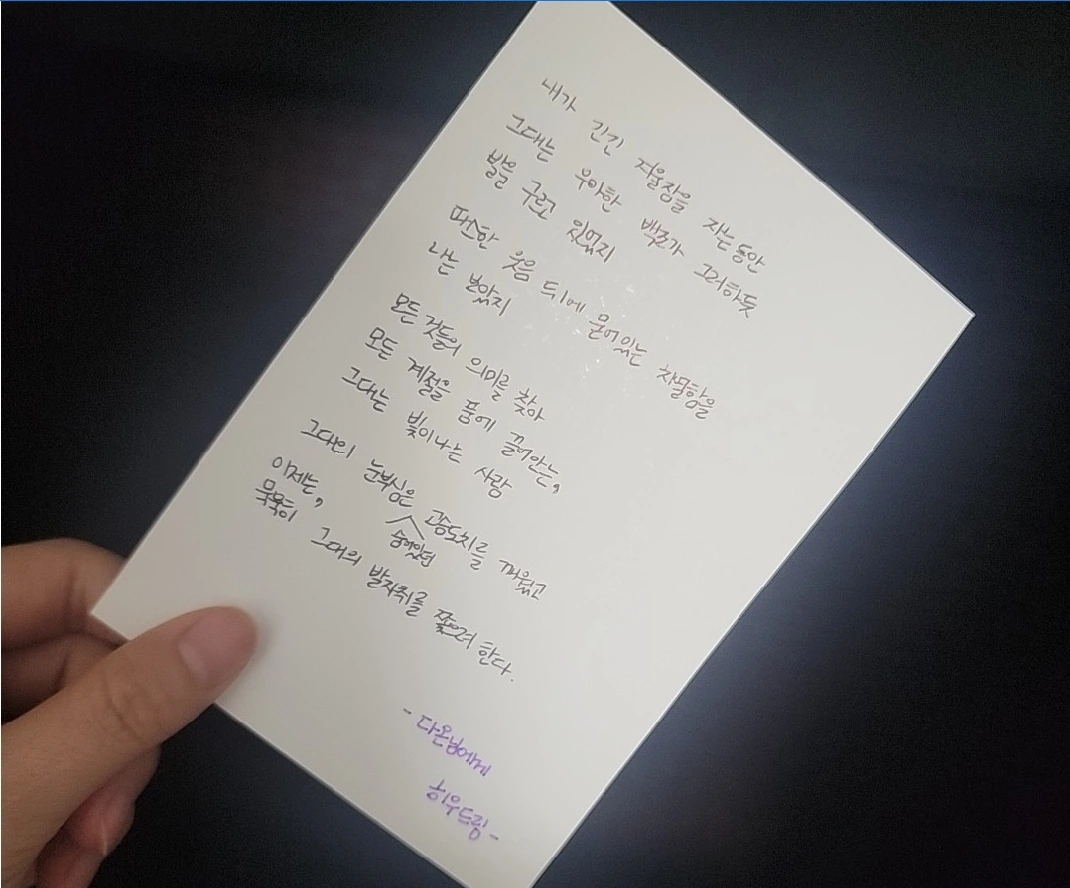 내가 긴긴 겨울잠을 자는 동안
그대는 우아한 백조가 그러하듯
발을 구르고 있었지
따스한 웃음 뒤에 묻어있는 차멸함을
나는 보았지
모든 것들의 의미를 찾아
모든 계절을 품에 끌어안는,
그대는 빛이나는 사람
그대의 눈부심은 고슴도치를 깨웠고
숨어있던
이제는,
묵묵히 그대의 발자취를 쫓으려 한다.
- 다온님에게
히우드림 -